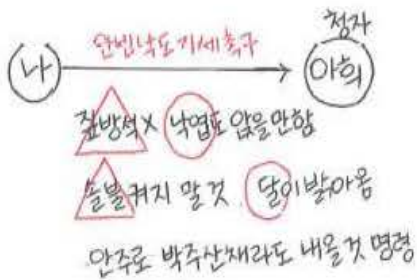 청자
안빈낙도
나 아희
짚방석X 낙엽도 앉을만함
솔불 켜지 말 것. 달이 밝아옴
안주로 박주산채라도 내올 것 명령